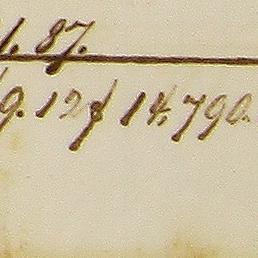 1. 87.
9. 12 14,790.